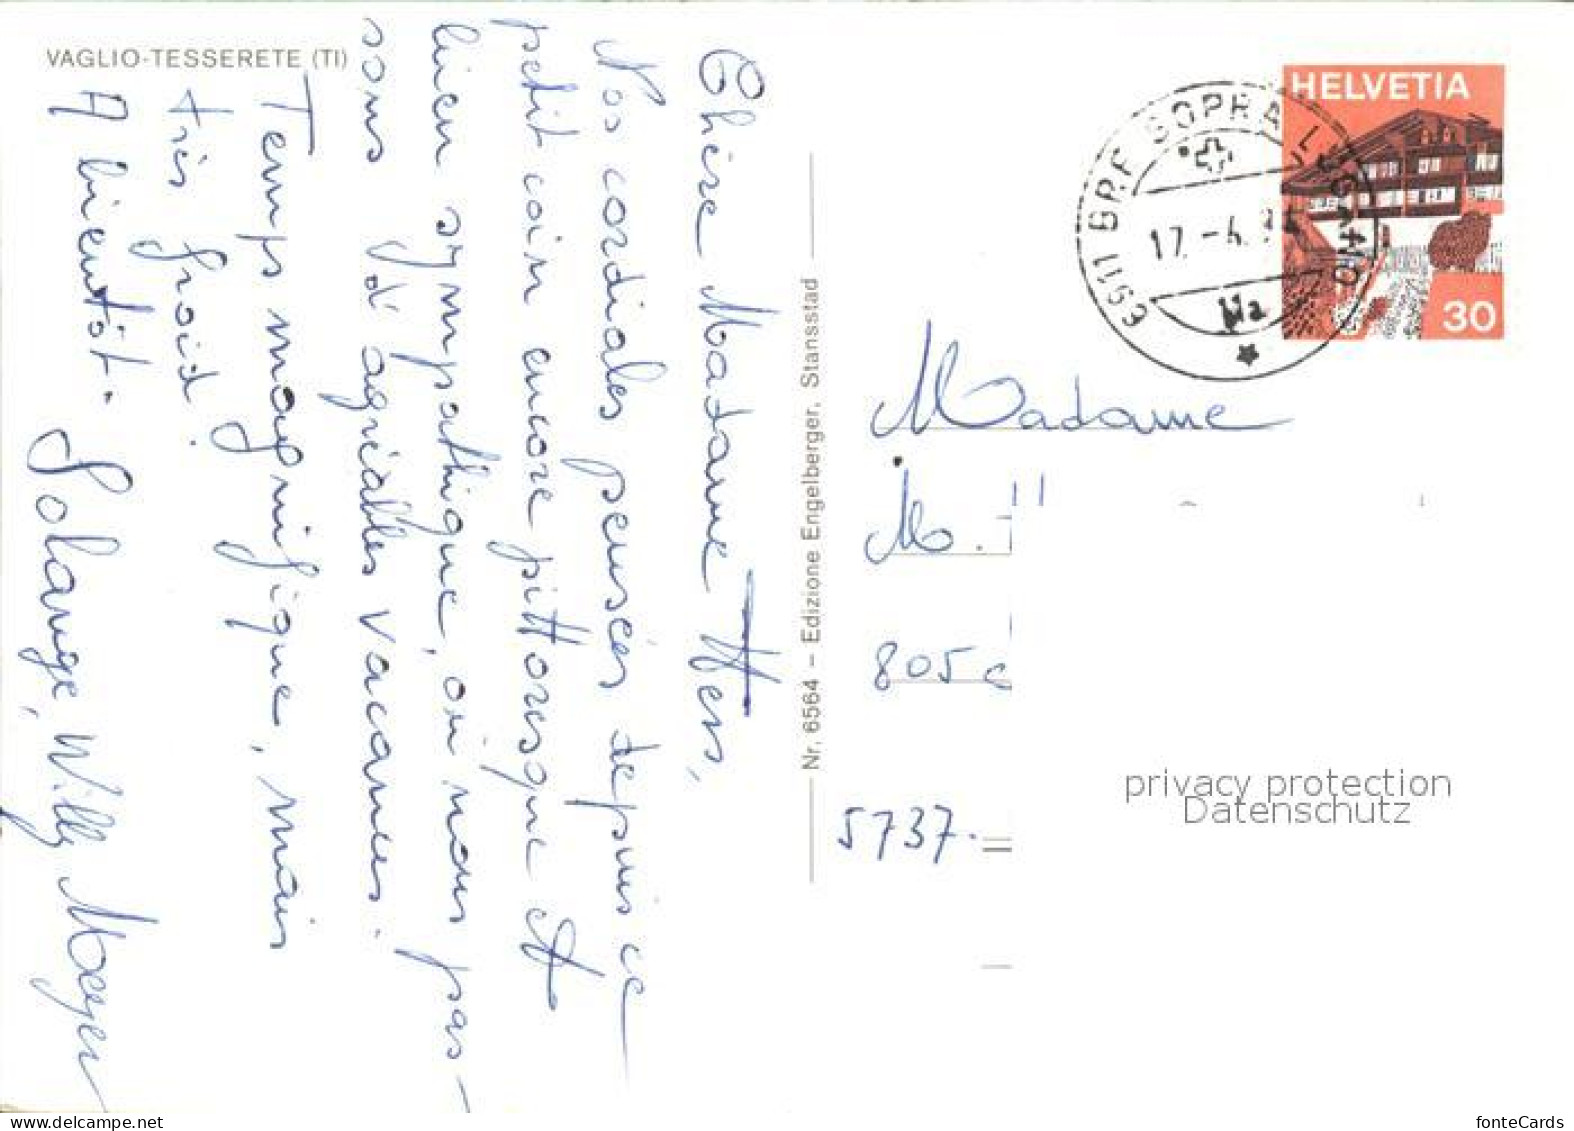 VAGLIO-TESSERETE (TI)
Chère Madame Hess,
Nos cordiales pensées depuis ce
petit coin encore pittoresque et
bien sympathique, où nous pas-
sons d'agréables vacances.
Temps magnifique, mais
très froid.
A bientôt.
Solange, Willy Mayer
Nr. 6564 – Edizione Engelberger, Stansstad
HELVETIA
30
6911 BRE SOPRA LUGANO
17.-4.
Madame
M.
805
5737.
privacy protection
Datenschutz
delcampe.net
fonteCards